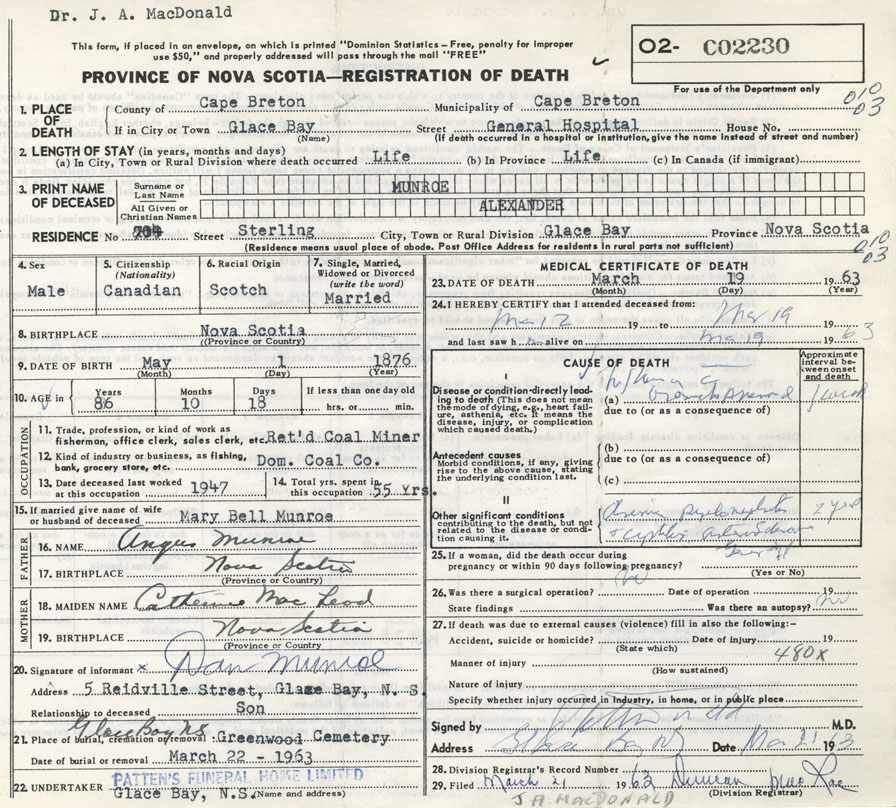 Dr. J. A. MacDonald
This form, if placed in an envelope, on which is printed "Dominion Statistics – Free, penalty for improper
use $50," and properly addressed will pass through the mail "FREE"
PROVINCE OF NOVA SCOTIA—REGISTRATION OF DEATH
02- C02230
For use of the Department only
010
03
1. PLACE OF DEATH
County of Cape Breton Municipality of Cape Breton
If in City or Town Glace Bay Street General Hospital House No.
(Name) (If death occurred in a hospital or institution, give the name instead of street and number)
2. LENGTH OF STAY (in years, months and days)
(a) In City, Town or Rural Division where death occurred Life (b) In Province Life (c) In Canada (if immigrant)
3. PRINT NAME OF DECEASED
Surname or Last Name MUNROE
All Given or Christian Names ALEXANDER
RESIDENCE No 704 Street Sterling City, Town or Rural Division Glace Bay Province Nova Scotia
(Residence means usual place of abode. Post Office Address for residents in rural parts not sufficient)
010
03
4. Sex
Male
5. Citizenship
(Nationality)
Canadian
6. Racial Origin
Scotch
7. Single, Married, Widowed or Divorced
(write the word)
Married
8. BIRTHPLACE Nova Scotia
(Province or Country)
9. DATE OF BIRTH May 1 1876
(Month) (Day) (Year)
10. AGE in Years Months Days If less than one day old
86 10 18 hrs. or min.
OCCUPATION
11. Trade, profession, or kind of work as
fisherman, office clerk, sales clerk, etc. Ret'd Coal Miner
12. Kind of industry or business, as fishing,
bank, grocery store, etc. Dom. Coal Co.
13. Date deceased last worked
at this occupation 1947
14. Total yrs. spent in
this occupation 55 Yrs.
15. If married give name of wife
or husband of deceased Mary Bell Munroe
FATHER
16. NAME Angus Munroe
17. BIRTHPLACE Nova Scotia
(Province or Country)
MOTHER
18. MAIDEN NAME Catherine MacLeod
19. BIRTHPLACE Nova Scotia
(Province or Country)
20. Signature of informant x Dan Munroe
Address 5 Reidville Street, Glace Bay, N. S.
Relationship to deceased Son
Glace Bay NS
21. Place of burial, cremation or removal Greenwood Cemetery
Date of burial or removal March 22 - 1963
PATTEN'S FUNERAL HOME LIMITED
22. UNDERTAKER Glace Bay, N.S. (Name and address)
MEDICAL CERTIFICATE OF DEATH
23. DATE OF DEATH March 19 1963
(Month) (Day) (Year)
24. I HEREBY CERTIFY that I attended deceased from:
Mar 12 19 to Mar 19 19
and last saw h im alive on Mar 19 1963
CAUSE OF DEATH
Approximate interval between onset and death
I
Disease condition directly leading to death (This does not mean the mode of dying, e.g., heart failure, asthenia, etc. It means the disease, injury, or complication which caused death.)
(a) 1 week
due to (or as a consequence of)
Antecedent causes
Morbid conditions, if any, giving rise to the above cause, stating the underlying condition last.
(b)
due to (or as a consequence of)
(c)
II
Other significant conditions
contributing to the death, but not related to the disease or condition causing it.
2 years
25. If a woman, did the death occur during
pregnancy or within 90 days following pregnancy?
(Yes or No)
26. Was there a surgical operation? No Date of operation 19
State findings Was there an autopsy? No
27. If death was due to external causes (violence) fill in also the following:–
Accident, suicide or homicide? Date of injury 19
(State which)
480X
Manner of injury
(How sustained)
Nature of injury
Specify whether injury occurred in industry, in home, or in public place
Signed by M.D.
Address Glace Bay NS Date Mar 21 1963
28. Division Registrar's Record Number
29. Filed March 21 1963 Duncan MacRae
(Division Registrar)
J A MACDONALD